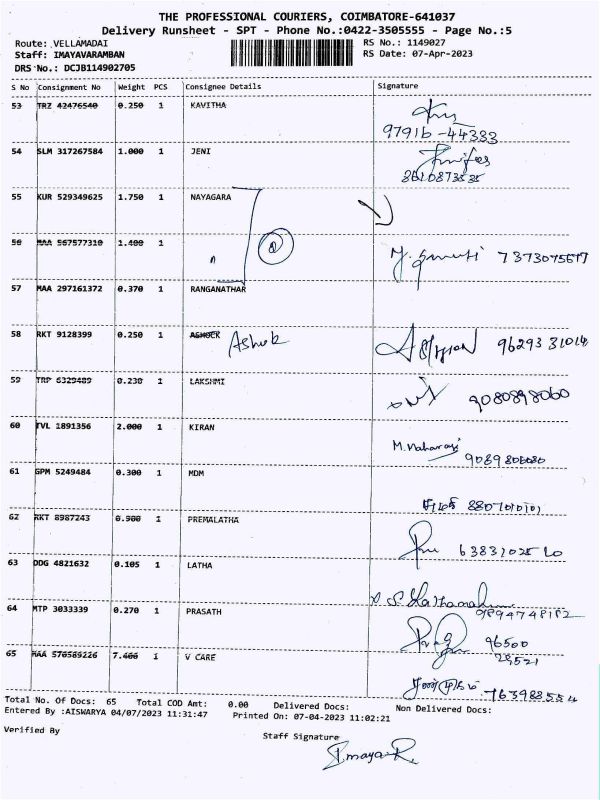 THE PROFESSIONAL COURIERS, COIMBATORE-641037
Delivery Runsheet - SPT - Phone No.:0422-3505555 - Page No.:5
Route: VELLAMADAI RS No.: 1149027
Staff: IMAYAVARAMBAN RS Date: 07-Apr-2023
DRS No.: DCJB114902705
S No Consignment No Weight PCS Consignee Details Signature
53 TRZ 42476540 0.250 1 KAVITHA
97916-44333
54 SLM 317267584 1.000 1 JENI
8610873535
55 KUR 529349625 1.750 1 NAYAGARA
56 MAA 567577310 1.400 1
57 MAA 297161372 0.370 1 RANGANATHAR
58 RKT 9128399 0.250 1 ASHOCK Ashok
96293 31014
59 TRP 6329489 0.230 1 LAKSHMI
9080898060
60 TVL 1891356 2.000 1 KIRAN
M. Maharasi
61 GPM 5249484 0.300 1 MDM
62 RKT 8987243 0.900 1 PREMALATHA
63 DDG 4821632 0.105 1 LATHA
64 MTP 3033339 0.270 1 PRASATH
96500
65 MAA 570589226 7.406 1 V CARE
Total No. Of Docs: 65 Total COD Amt: 0.00 Delivered Docs: Non Delivered Docs:
Entered By :AISWARYA 04/07/2023 11:31:47 Printed On: 07-04-2023 11:02:21
Verified By Staff Signature